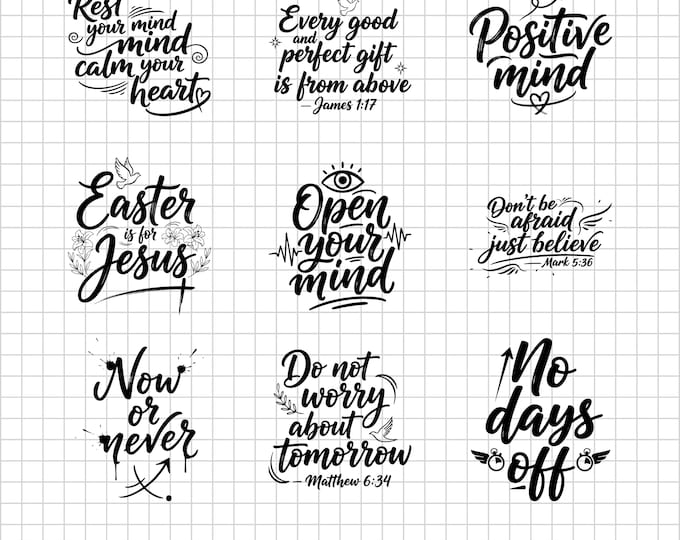 Rest
your mind
mind
calm your
heart
Every good
and
perfect gift
is from above
– James 1:17
Positive
mind
Easter
is for
Jesus
Open
your
mind
Don't be
afraid
just believe
Mark 5:36
Now
or
never
Do not
worry
about
tomorrow
– Matthew 6:34
No
days
off